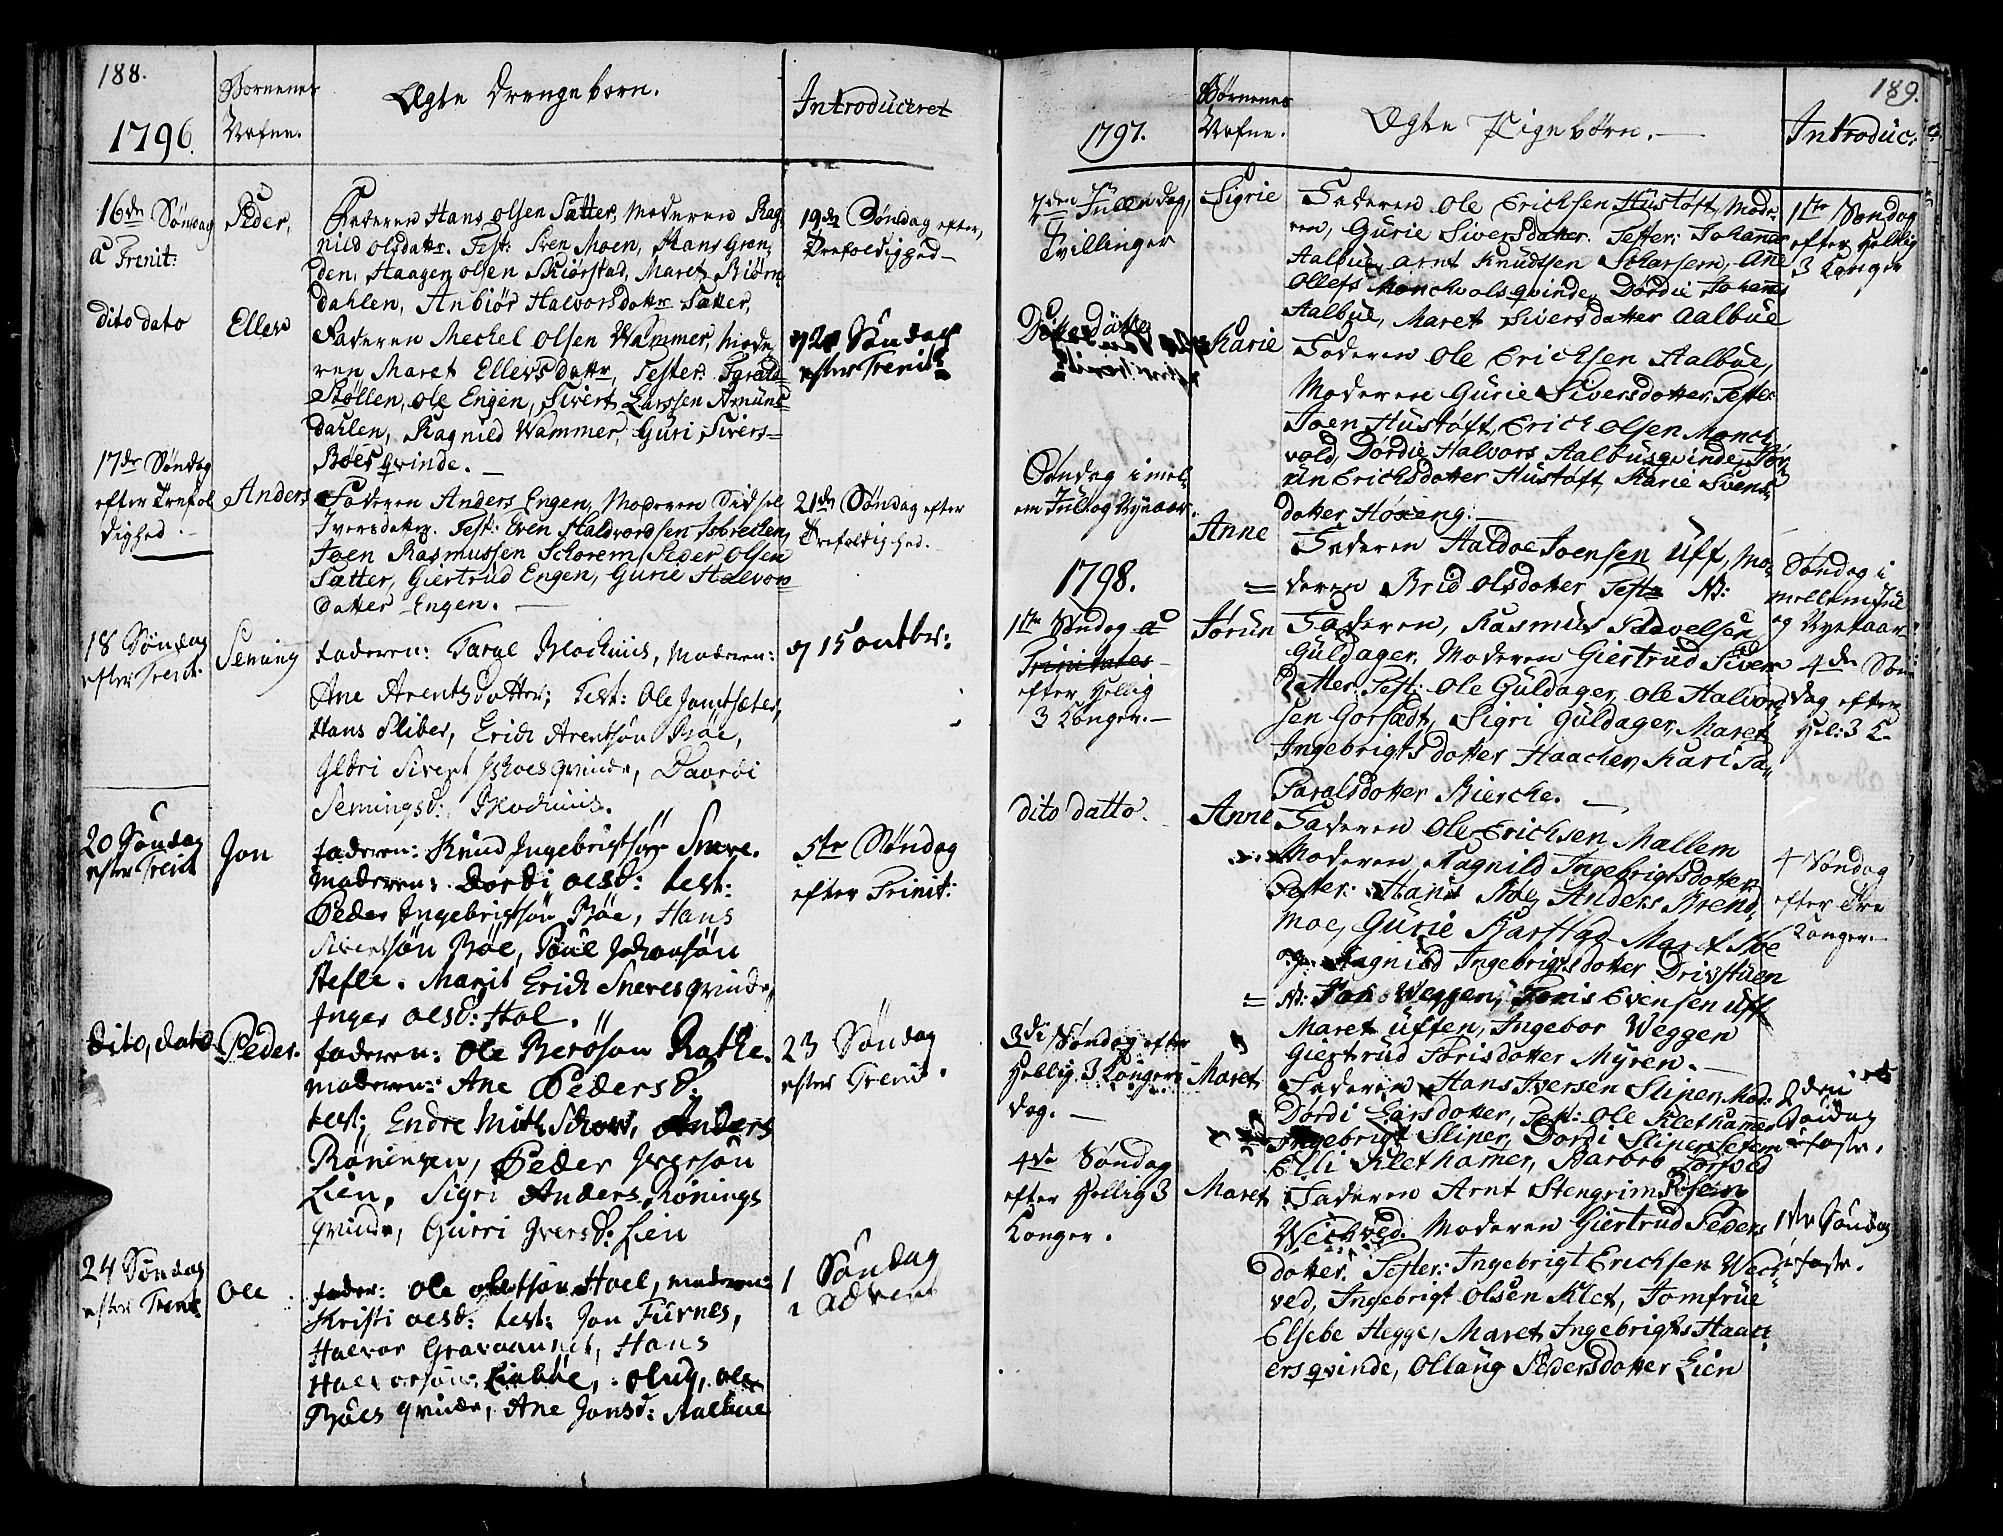 188.
1796.
Børnenes
Nafne.
Ægte Drengebørn.
Introduceret
16de Søndag
a Trenit:
Peder,
Faderen Hans Olsen Sætter, Moderen Rag
nild Olsdattr. Test: Sven Moen, Hans Gren
den, Haagen Olsen Skiørstad, Maret Biørn
dahlen, Anbiør Halvorsdattr Sætter,
19de Søndag efter
Trefoldighed
dito dato
Ellev
Faderen Mechel Olsen Wammer, Mode
ren Maret Ellevsdattr, Tester:
Støllen, Ole Engen, Sivert Larssen Armuns
dahlen, Ragnild Wammer, Guri Sivers
Bøes qvinde.
Søndag
efter Trenit:
17de Søndag
efter Trefol
dighed.
Anders
Faderen Anders Engen, Moderen Sidsel
Iversdattr. Test: Even Haldvordsen
Joen Rasmussen Schorem, Peder Olsen
Sætter, Giertrud Engen, Gurie Halvors
datter Engen.
21de Søndag efter
Trefoldighed.
18 Søndag
efter Trenit:
Seming
faderen: Taral Blochuus, Moderen:
Ane Arentsdatter; Test: Ole Jamtsæter,
Hans Sliber, Erich Arentsøn Bøe,
Sivert qvinde,
Semingsd: Blochuus.
15 octbr:
20 Søndag
efter Trenit
Jon
faderen: Knud Ingebrigtsøn Snøve.
Moderen: Dordi olsd: test:
Peder Ingebrigtsøn Bøe, Hans
Sivertsøn Bøe, Poul Johansøn
Hefle. Marit Erich Snøves qvinde,
Inger olsd: Hol.
5te Søndag
efter Trinit:
dito, dato
Peder.
faderen: Ole Berøson Rathe.
moderen: Ane Pedersd:
test; Endre Schou, Anders
Røningen, Peder Iversøn
Lien, Sigri Anders Rønings
qvinde, Guri Iversd: Lien
23 Søndag
efter Trenit.
24 Søndag
efter Trenit
Ole
fader: Ole Hoel, moderen:
Kristi olsd: test: Jon Furnes,
Halvor Gravaunet, Hans
Halvorsøn, Ole
Bøes qvinde, Ane Jonsd: Aalbue
1 Søndag
i advent
189.
1797.
Børnenes
Nafne.
Ægte Pigebørn.
Introduc:
2den Juledag,
Tvillinger
Sigrie
Faderen Ole Erichsen Hustøft, Mode
ren, Gurie Siversdatter. Tester: Johannes
Aalbue, Arnt Knudtsen Schorsem, Ane
Ollefs Monchvols qvinde, Dordie Johannes
Aalbue, Maret Siversdatter Aalbue
1te Søndag
efter Hellig
3 Konger
Karie
Faderen Ole Erichsen Aalbue,
Moderen Gurie Siversdotter, Tester
Joen Hustøft, Erich Olsen Monch
vold, Dordie Halvors Aalbus qvinde, Jør
un Erichsdotter Hustøft, Karie Svens
datter Høxeng.
Søndag imel
em Jul og Nÿaar.
Anne
Faderen Haldoe Joensen Uff, Mo
deren Brid Olsdotter Test: N:
Søndag i
mellem Jul
og Nyeaar
1798.
1te Søndag a
Trinitates
efter Hellig
3 Konger.
Jorun
Faderen, Rasmus Pavelsen
Guldager, Moderen Giertrud Sivers
datter. Test: Ole Guldager, Ole Halvord
sen Gorsædt, Sigri Guldager, Maret
Ingebrigtsdotter Haachen, Kari Ta
Taralsdotter Bierche.
4de Søn
dag efter
Hel: 3 K.
dito datto.
Anne
Faderen Ole Erichsen Mallem
Moderen Ragnild Ingebrigtsdotter
Tester: Hans Moe, Anders Brend
moe, Gurie Karstad, Maret Moe
og Ragnild Ingebrigtsdotter Drivstuen
N: Jon Weggen, Evensen Uff
Maret Uffen, Ingebor Weggen
Giertrud Jørisdotter Mÿren.
4 Søndag
efter Tre
Konger.
3di Søndag efter
Hellig 3 Konger
dag.
Maret
Faderen Hans Iversen Sliper, Mod:
Dordi Larsdotter, Test: Ole Klethammer
Ingebrigt Sliper, Dordi Sliper
Elli Klethamer, Barbro
2den
Søndag
i faste.
4de Søndag
efter Hellig 3
Konger.
Maret
Faderen Arnt Stengrimsen
Wechved. Moderen Giertrud Peders
dotter. Tester: Ingebrigt Erichsen Wech
ved, Ingebrigt Olsen Klet, Jomfrue
Elsebe Hegge, Maret Ingebrigts Haach
ers qvinde, Ollaug Pedersdotter Lien
1ste Søndag
i faste.